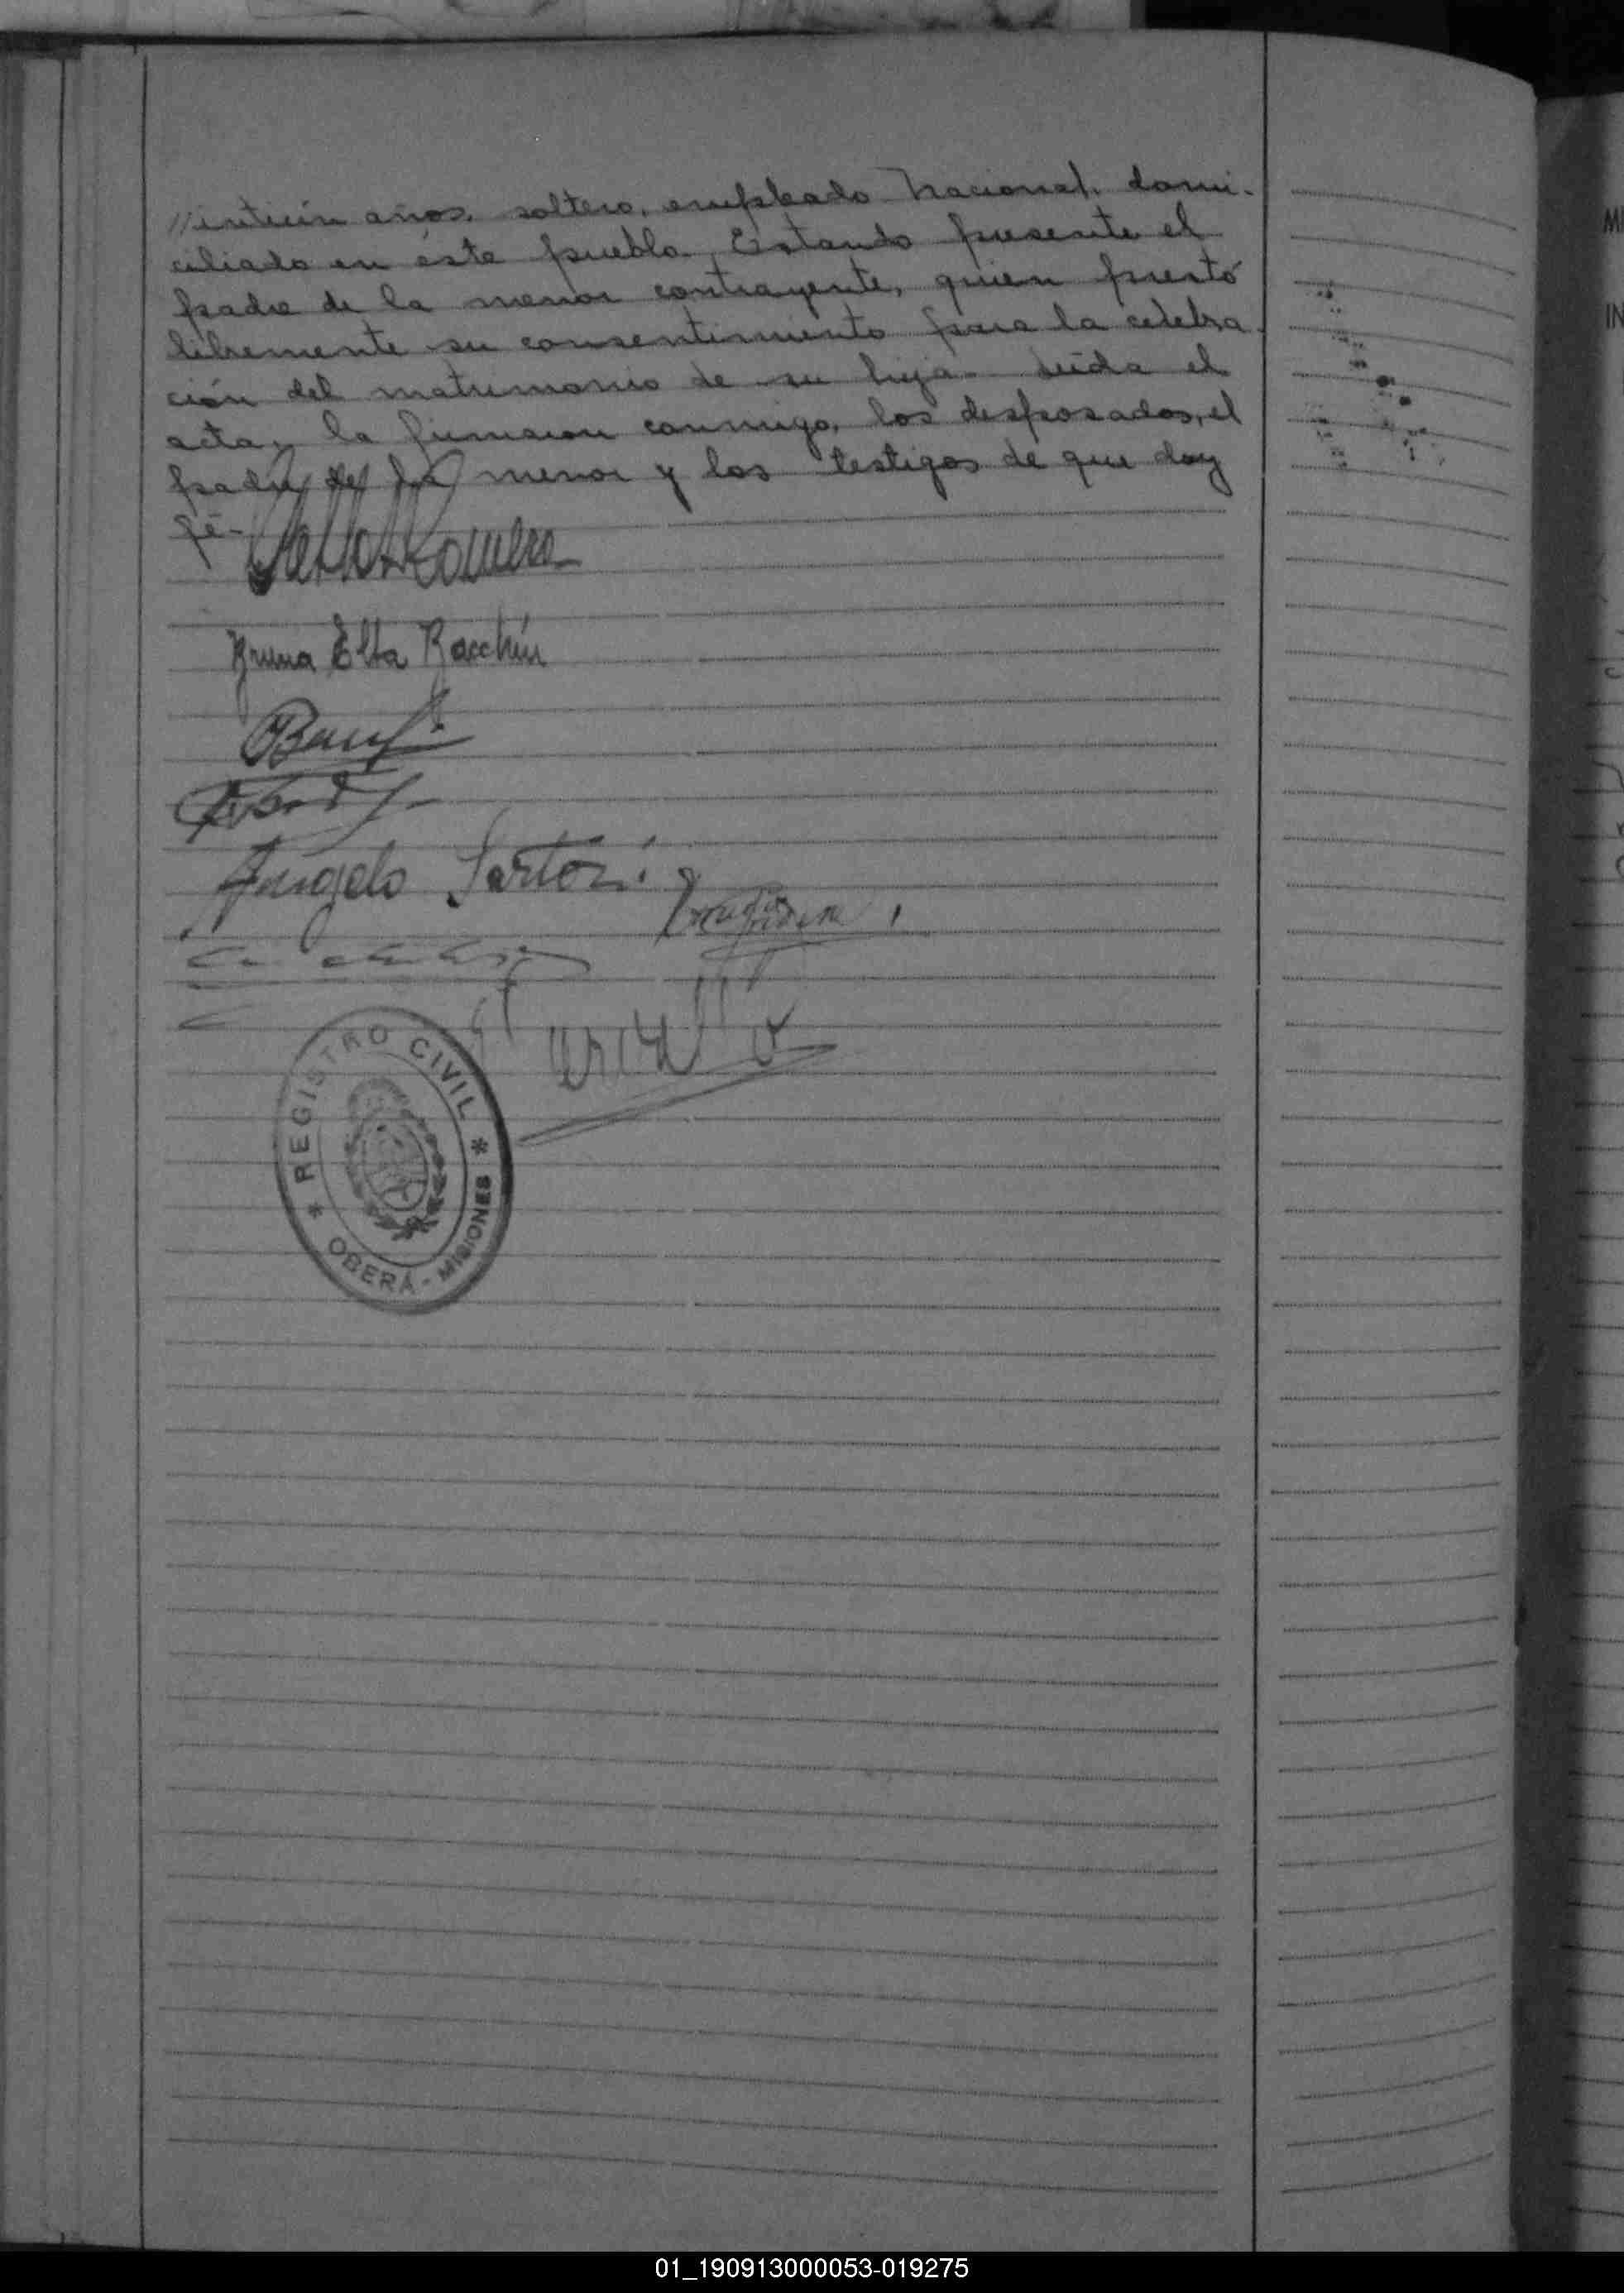 //intiún años, soltero, empleado Nacional, domi-
ciliado en ésta pueblo. Estando presente el
padre de la menor contrayente, quien prestó
libremente su consentimiento para la celebra-
ción del matrimonio de su hija. Leída el
acta, la firmaron conmigo, los desposados, el
padre de la menor y los testigos de que doy
fé-
Romero
Bruna Elba Bacchin
Angelo Sartori
REGISTRO CIVIL
OBERÁ - MISIONES
01_190913000053-019275